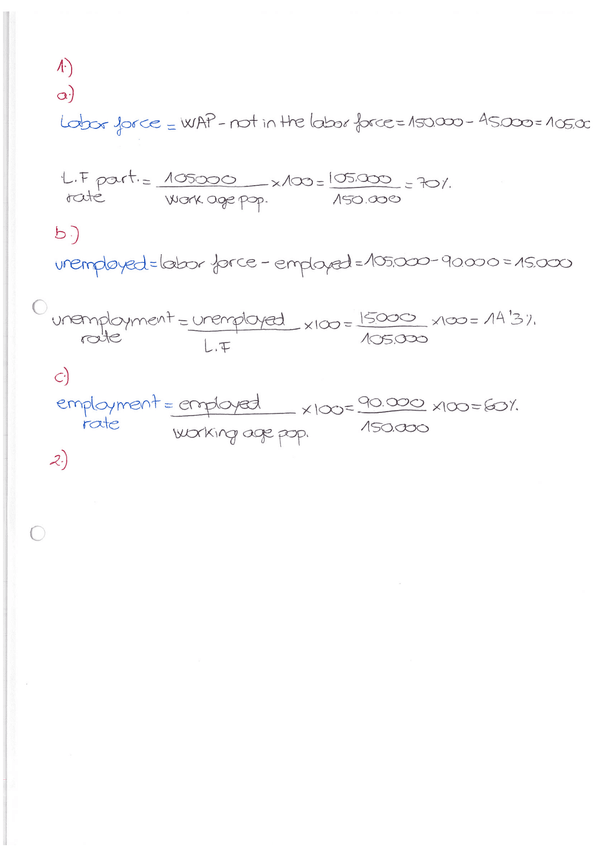 1.)
a.)
Labor force = WAP - not in the labor force = 150.000 - 45.000 = 105.00
L.F part. rate = 105000 / work age pop. x100 = 105.000 / 150.000 = 70%.
b.)
unemployed = labor force - employed = 105.000 - 90000 = 15.000
unemployment rate = unemployed / L.F x100 = 15000 / 105.000 x100 = 14'3%.
c)
employment rate = employed / working age pop. x100 = 90.000 / 150.000 x100 = 60%.
2.)